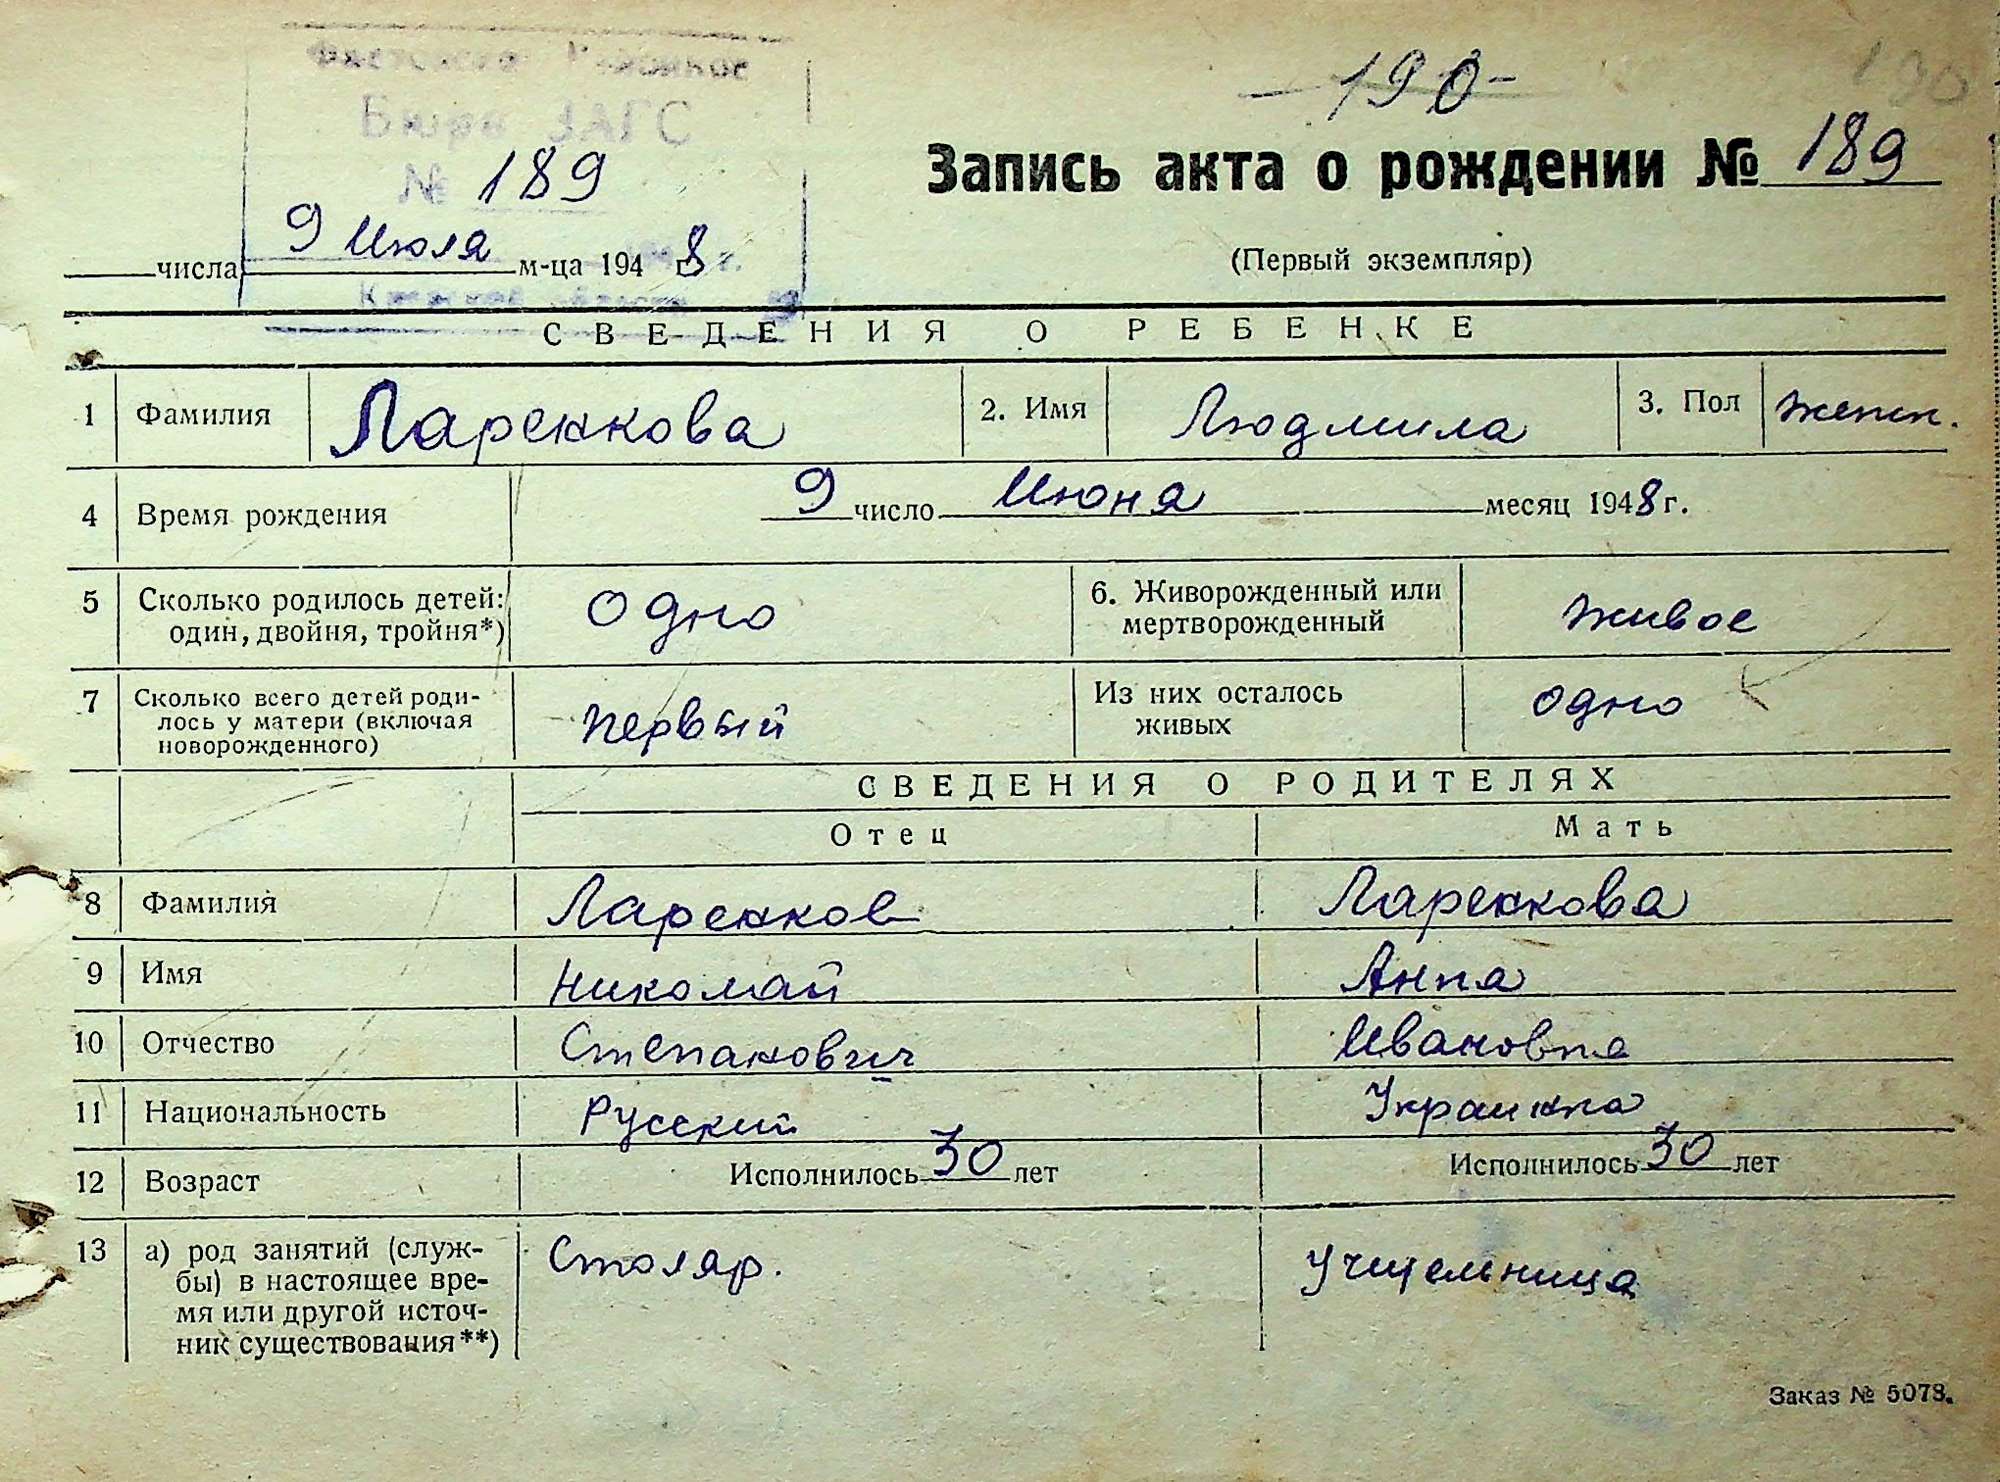 Бюро ЗАГС
-190-
190
Запись акта о рождении № 189
№ 189
9 Июля
числа м-ца 1948 г.
(Первый экземпляр)
Киевской области
СВЕДЕНИЯ О РЕБЕНКЕ
1 Фамилия Ларенкова 2. Имя Людмила 3. Пол женск.
4 Время рождения 9 число Июня месяц 1948 г.
5 Сколько родилось детей: один, двойня, тройня*) Одно 6. Живорожденный или мертворожденный живое
7 Сколько всего детей роди-
лось у матери (включая
новорожденного) первый Из них осталось живых одно
СВЕДЕНИЯ О РОДИТЕЛЯХ
Отец Мать
8 Фамилия Ларенков Ларенкова
9 Имя Николай Анна
10 Отчество Степанович Ивановна
11 Национальность Русский Украинка
12 Возраст Исполнилось 30 лет Исполнилось 30 лет
13 а) род занятий (служ- Столяр. учительница
бы) в настоящее вре-
мя или другой источ-
ник существования**)
Заказ № 5078.